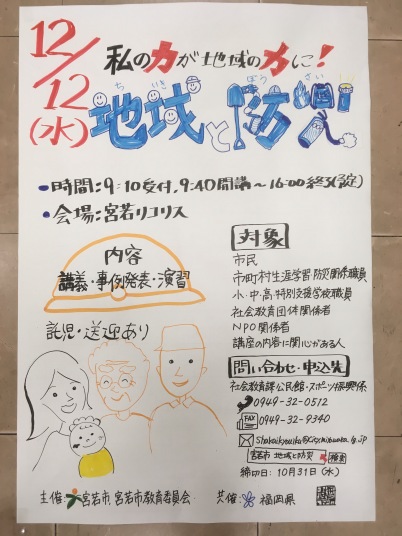 12/12(水)
私の力が地域の力に!
ち いき ぼう さい
地域と防災
・時間:9:10受付、9:40開講~16:00終了(予定)
・会場:宮若リコリス
内容
講義・事例発表・演習
託児・送迎あり
対象
市民
市町村生涯学習・防災関係職員
小・中・高・特別支援学校職員
社会教育団体関係者
NPO関係者
講座の内容に関心がある人
問い合わせ・申込先
社会教育課公民館・スポーツ振興係
0949-32-0512
FAX 0949-32-9340
宮若市 地域と防災 検索
締切日:10月31日(水)
主催:宮若市、宮若市教育委員会 共催:福岡県